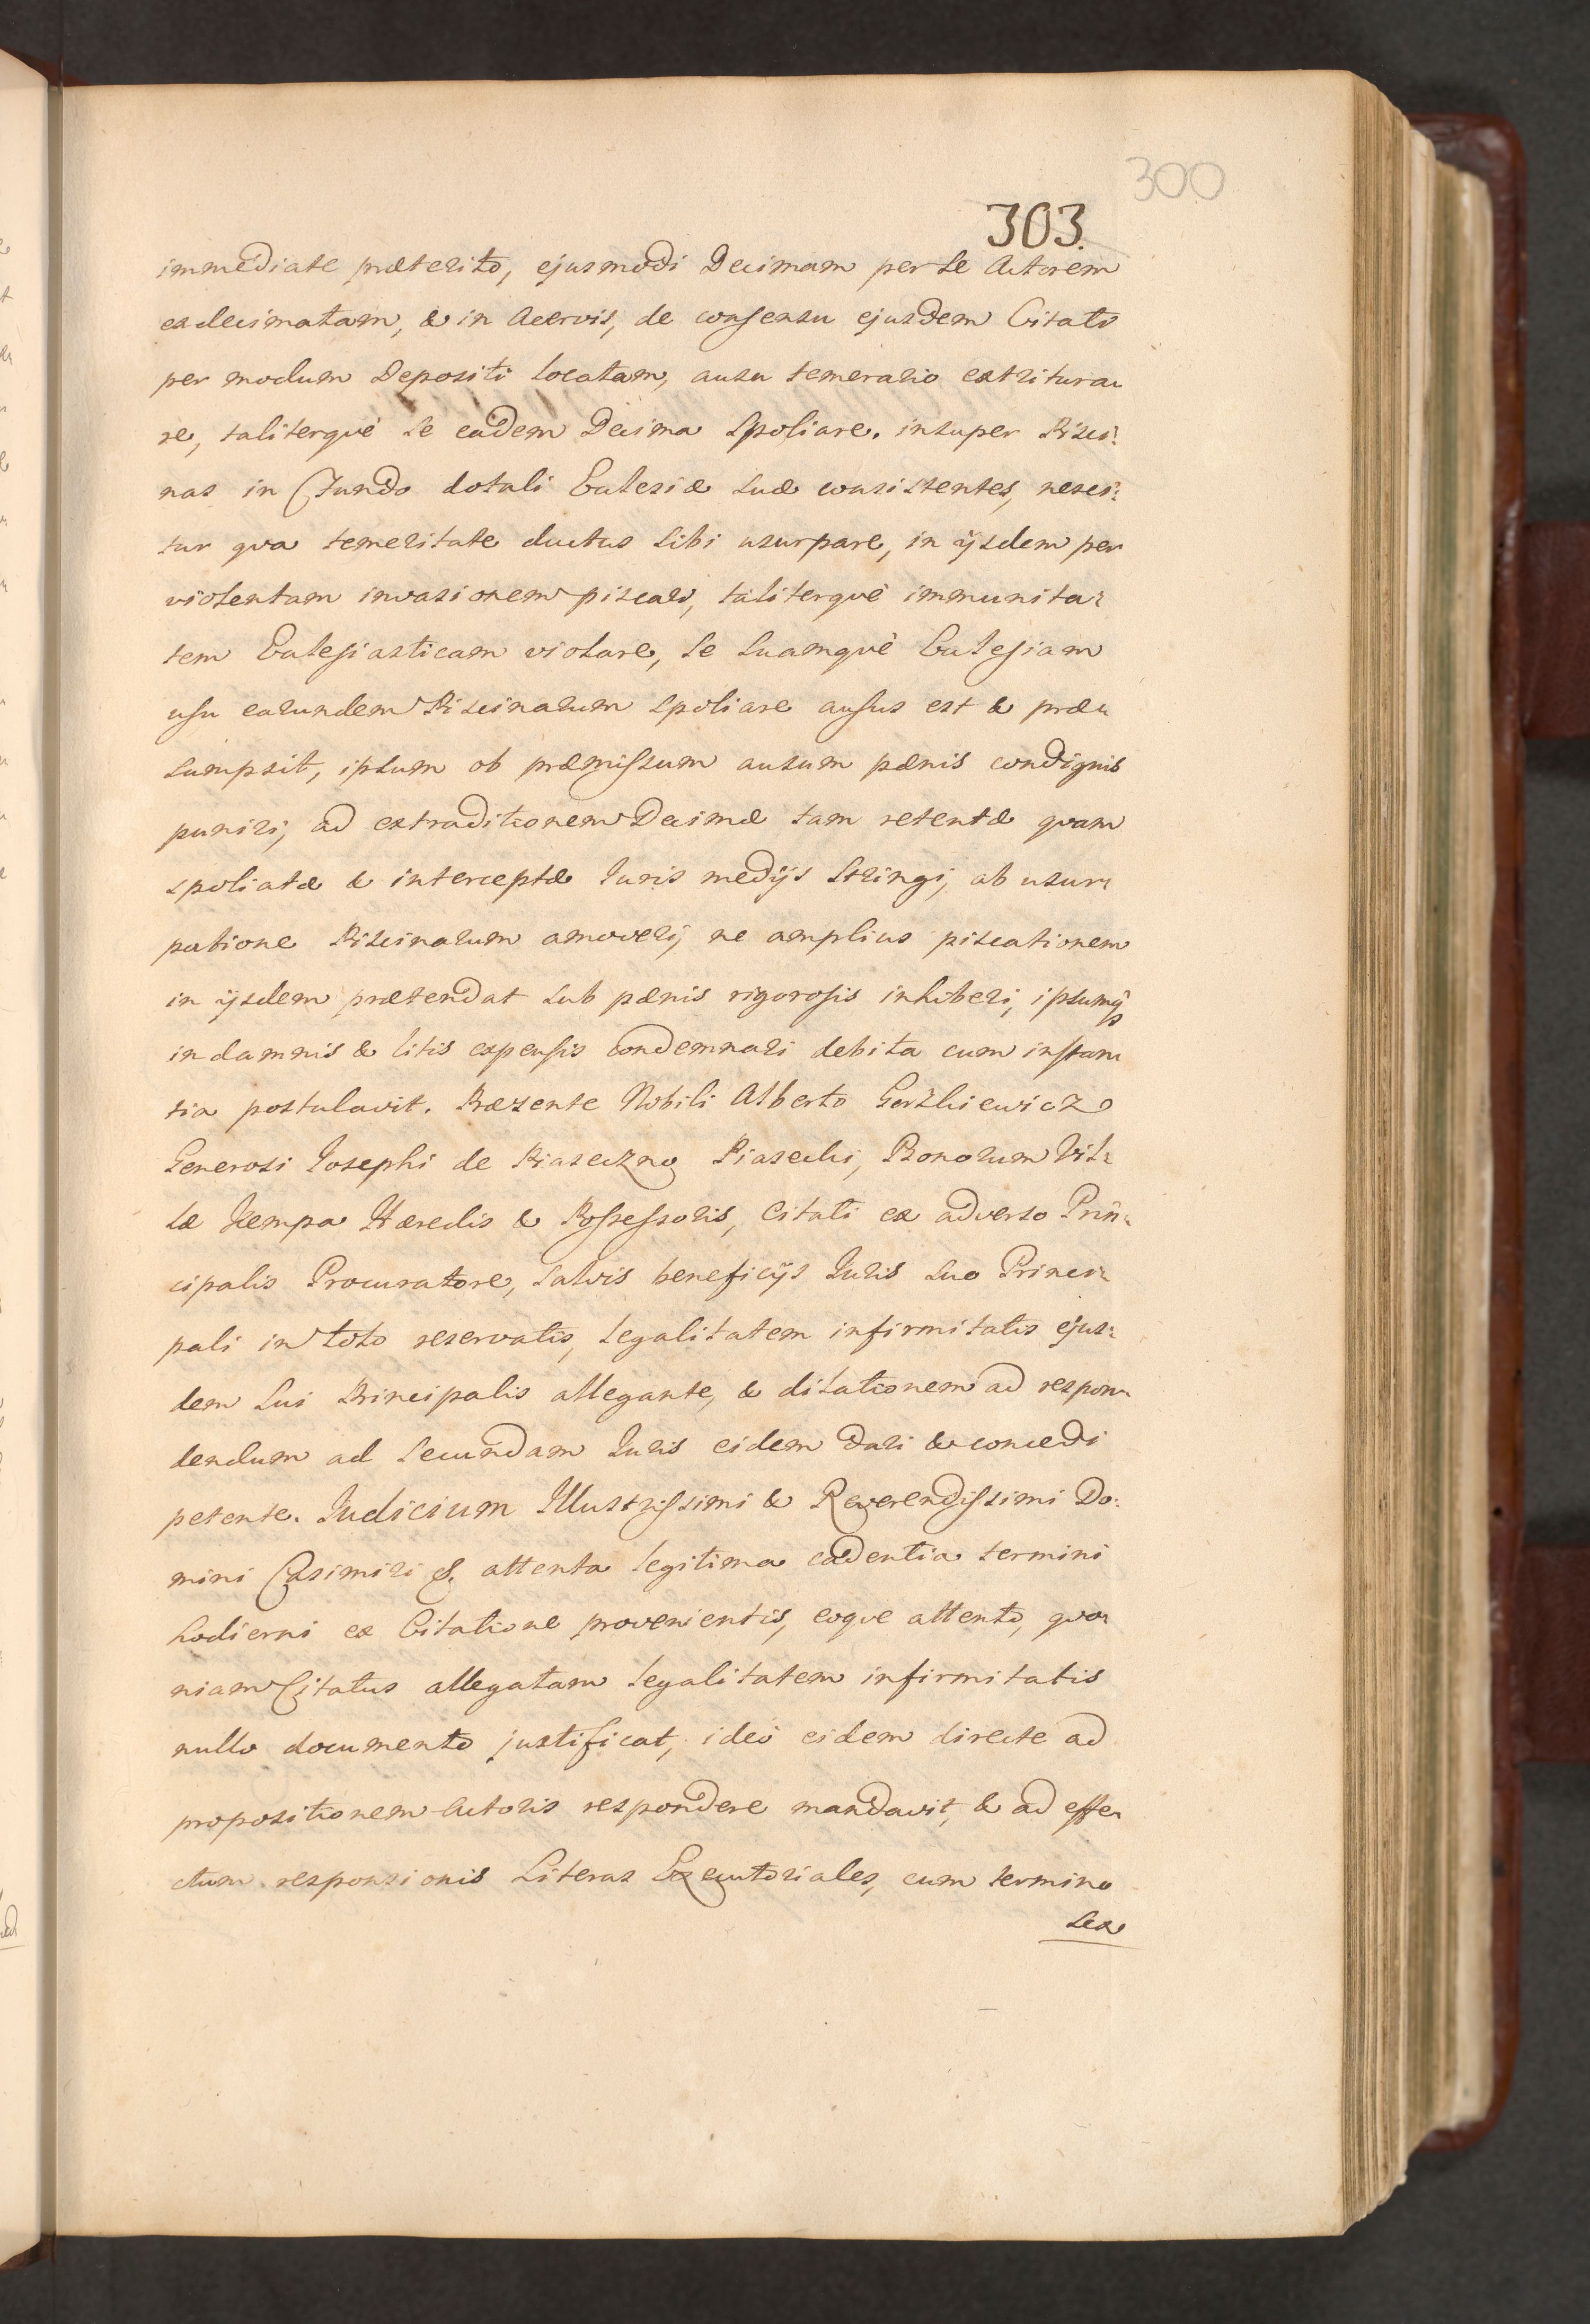 300
303.
immediate præterito, ejusmodi Decimam per se Actorem
exdecimatam, & in Acervis, de consensu ejusdem Citati
per modum Depositi locatam, ausu temerario extritura-
re, taliterquè se eadem Decima spoliare. insuper Pisci-
nas in Fundo dotali Ecclesiæ suæ consistentes, nesci-
tur qva temeritate ductus sibi usurpare, in ijsdem per
violentam invasionem piscari, taliterquè immunita-
tem Ecclesiasticam violare, se suamquè Ecclesiam
usu earundem Piscinarum spoliare ausus est & præ-
sumpsit, ipsum ob præmissum ausum pænis condignis
puniri, ad extraditionem Decimæ tam retentæ qvam
spoliatæ & interceptæ Juris medijs stringi, ab usur-
patione Piscinarum amoveri, ne amplius piscationem
in ijsdem prætendat sub pænis rigorosis inhiberi, ipsumq
in damnis & litis expensis condemnari debita cum instan-
tia postulavit. Præsente Nobili Alberto Gorzkiewicz
Generosi Josephi de Piaseczno Piasecki, Bonorum Vil-
læ Kempa Hæredis & Possessoris, Citati ex adverso Prin-
cipalis Procuratore, salvis beneficijs Juris suo Princi-
pali in toto reservatis, legalitatem infirmitatis ejus-
dem sui Principalis allegante, & dilationem ad respon-
dendum ad secundam Juris eidem dari & concedi
petente. Judicium Illustrissimi & Reverendissimi Do-
mini Casimiri &. attenta legitima cadentia termini
hodierni ex Citatione provenientis, eoque attento, qvo-
niam Citatus allegatam legalitatem infirmitatis
nullo documento justificat, ideo eidem directe ad
propositionem Actoris respondere mandavit, & ad effe-
ctum responsionis Literas Executoriales, cum termino
sex